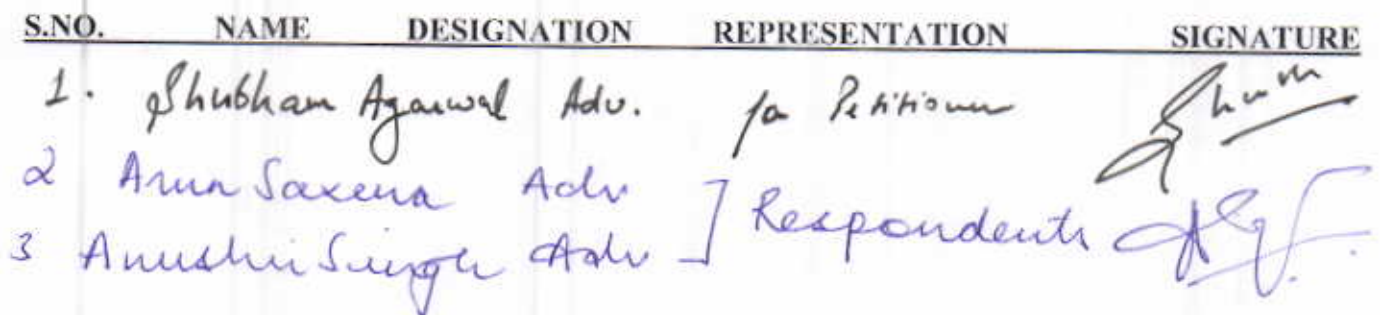 S.NO. NAME DESIGNATION REPRESENTATION SIGNATURE
1. Shubham Agarwal Adv. for Petitioner
2 Arun Saxena Adv ] Respondents
3 Anushri Singh Adv